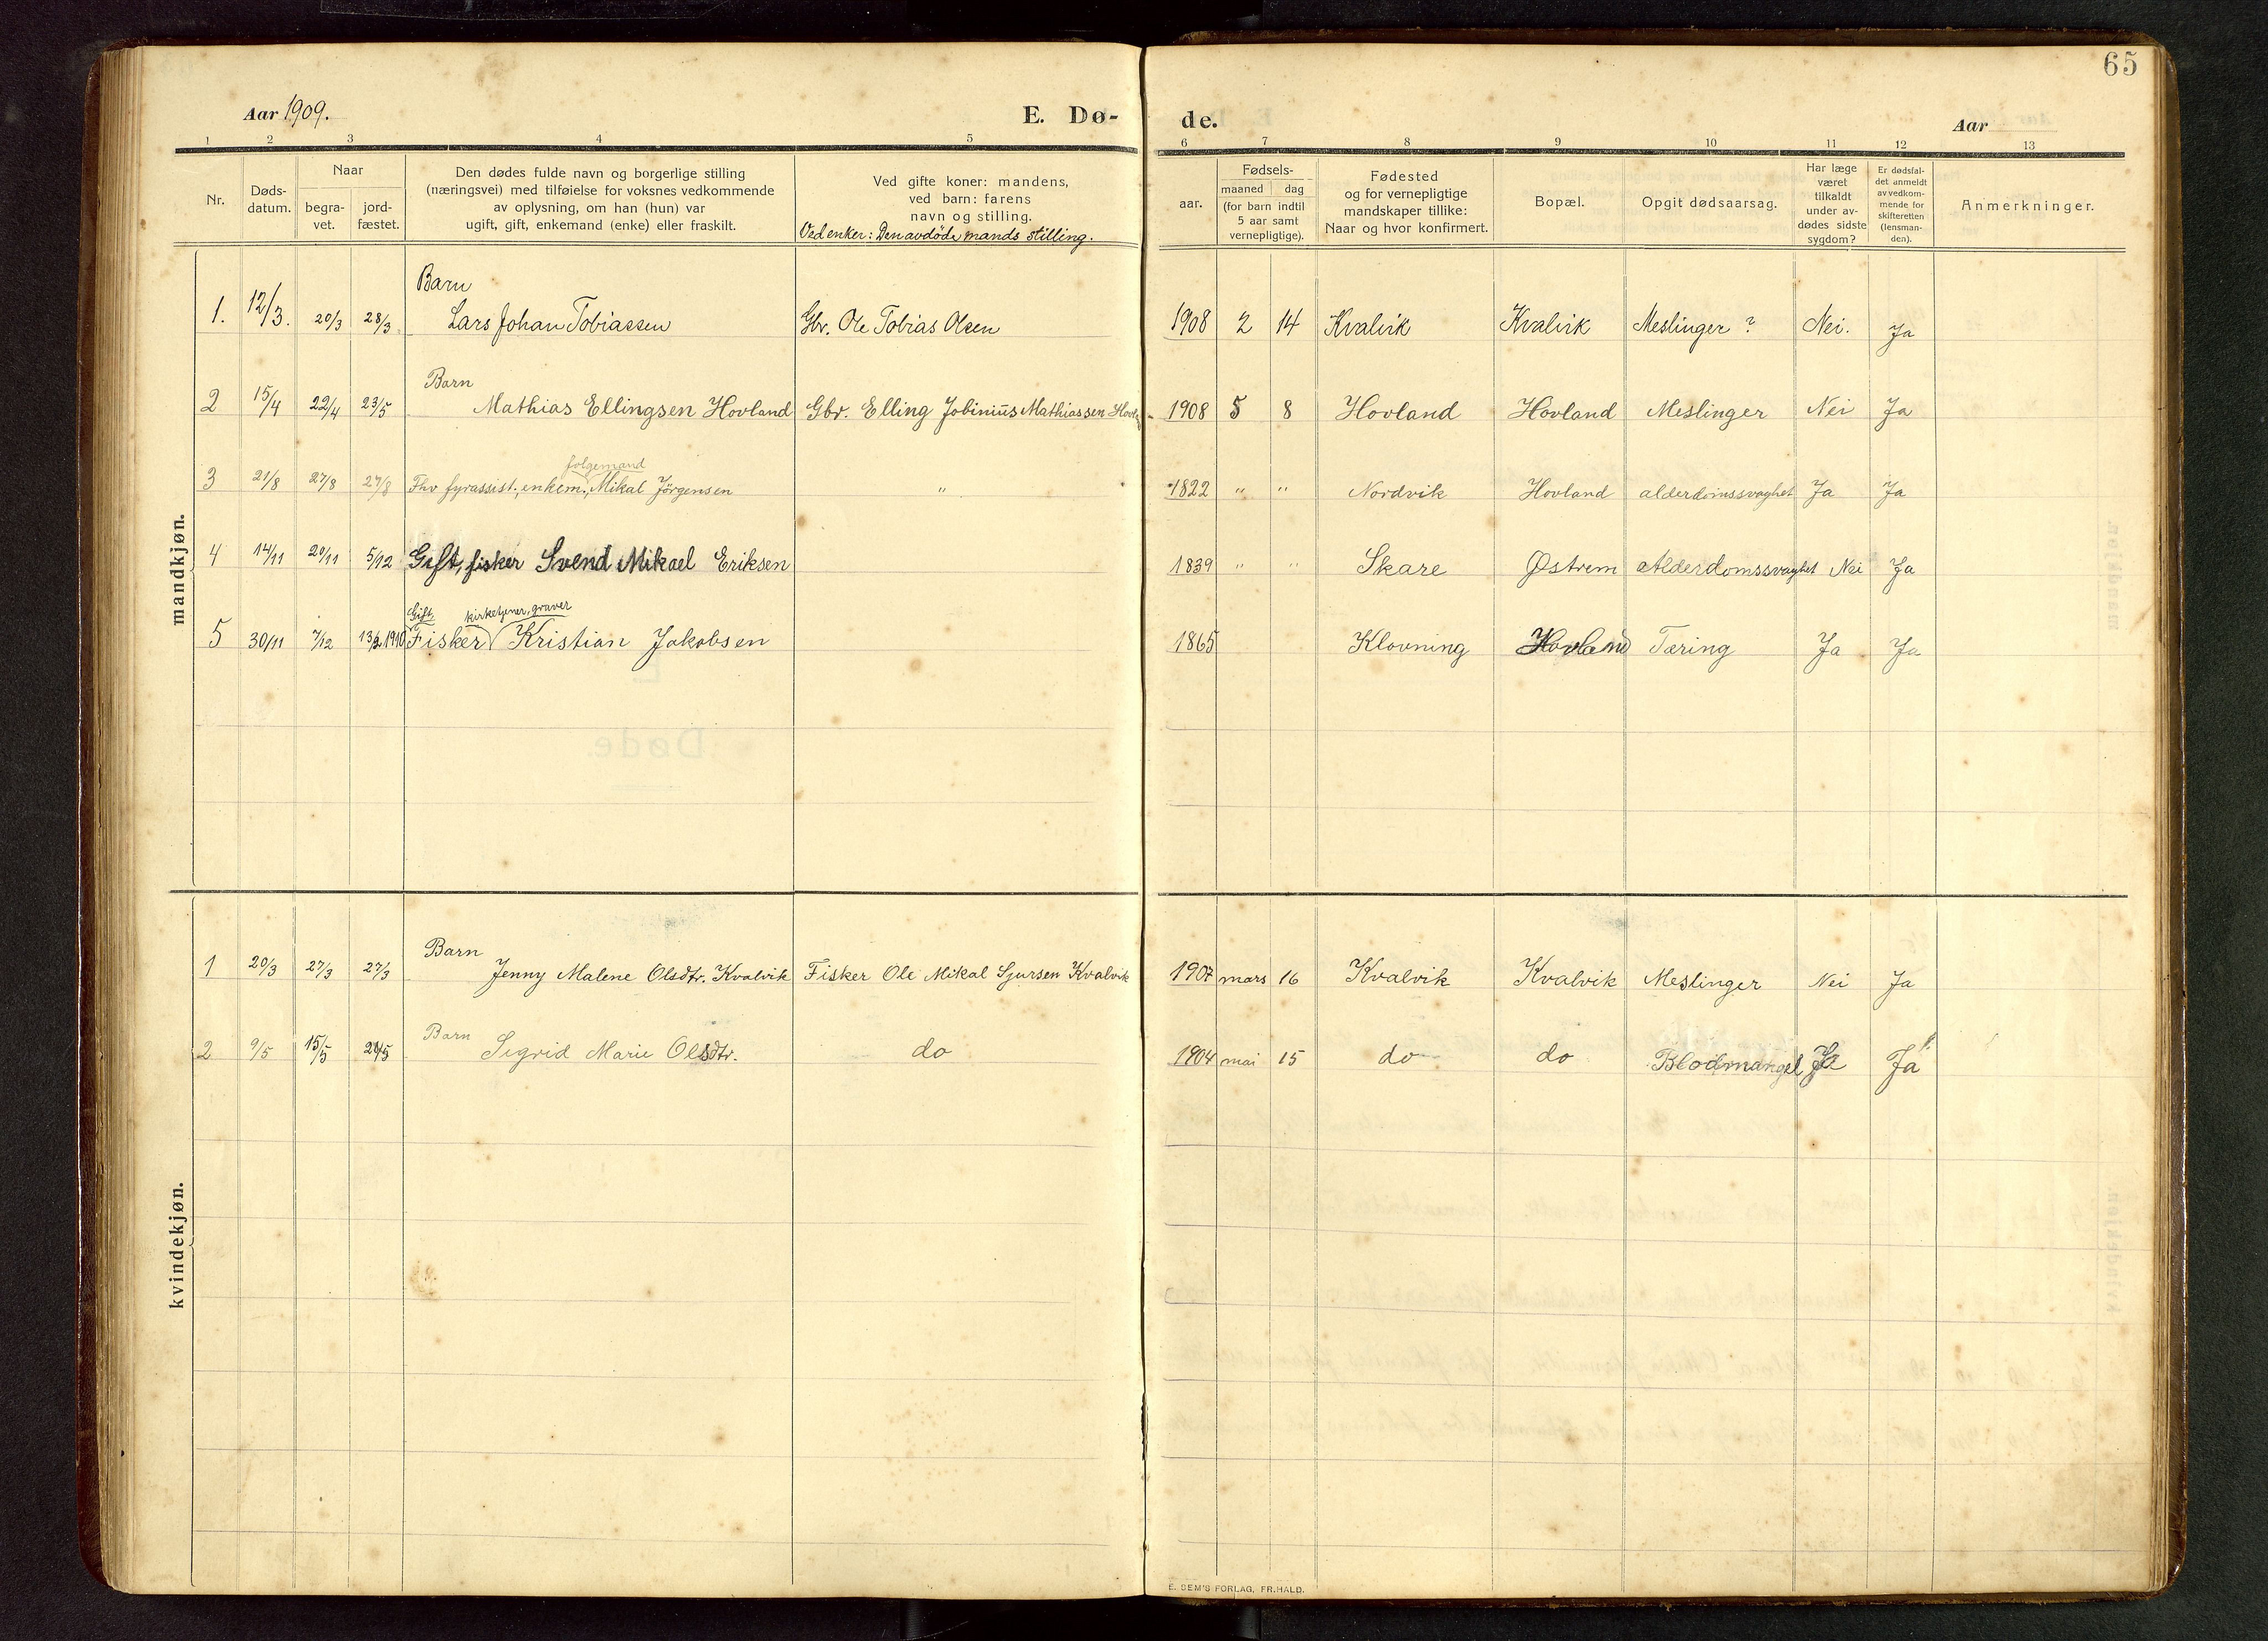 65
Aar 1909.
E. Dø-
de.
Aar
1 2 3 4 5 6 7 8 9 10 11 12 13
Nr.
Døds-
datum.
Naar
begra-
vet.
jord-
fæstet.
Den dødes fulde navn og borgerlige stilling
(næringsvei) med tilføielse for voksnes vedkommende
av oplysning, om han (hun) var
ugift, gift, enkemand (enke) eller fraskilt.
Ved gifte koner: mandens,
ved barn: farens
navn og stilling.
Ved enker: Den avdøde mands stilling.
aar.
Fødsels-
maaned dag
(for barn indtil
5 aar samt
vernepligtige).
Fødested
og for vernepligtige
mandskaper tillike:
Naar og hvor konfirmert.
Bopæl.
Opgit dødsaarsag.
Har læge
været
tilkaldt
under av-
dødes sidste
sygdom?
Er dødsfal-
det anmeldt
av vedkom-
mende for
skifteretten
(lensman-
den).
Anmerkninger.
mandkjøn.
Barn
1. 12/3. 20/3 28/3 Lars Johan Tobiassen Gbr. Ole Tobias Olsen 1908 2 14 Kvalvik Kvalvik Meslinger ? Nei. Ja
Barn
2 15/4 22/4 23/5 Mathias Ellingsen Hovland Gbr. Elling Jobinius Mathiassen 1908 5 8 Hovland Hovland Meslinger Nei Ja
folgemand
3 21/8 27/8 27/8 Fhv fyrassist., enkem., Mikal Jørgensen " 1822 " " Nordvik Hovland alderdomssvaghet Ja Ja
4 14/11 20/11 5/12 Gift, fisker Svend Mikael Eriksen 1839 " " Skare Østrem Alderdomssvaghet Nei Ja
Gift. kirketjener, graver
5 30/11 7/12 13/2 1910 Fisker Kristian Jakobsen 1865 Klovning Hovland Tæring Ja Ja
kvindekjøn.
Barn
1 20/3 27/3 27/3 Jenny Malene Olsdtr. Kvalvik Fisker Ole Mikal Sjursen Kvalvik 1907 mars 16 Kvalvik Kvalvik Meslinger Nei Ja
Barn
2 9/5 15/5 Sigrid Marie Olsdtr. do 1904 mai 15 do do Blodmangel Ja Ja
E. SEM'S FORLAG, FR.HALD.